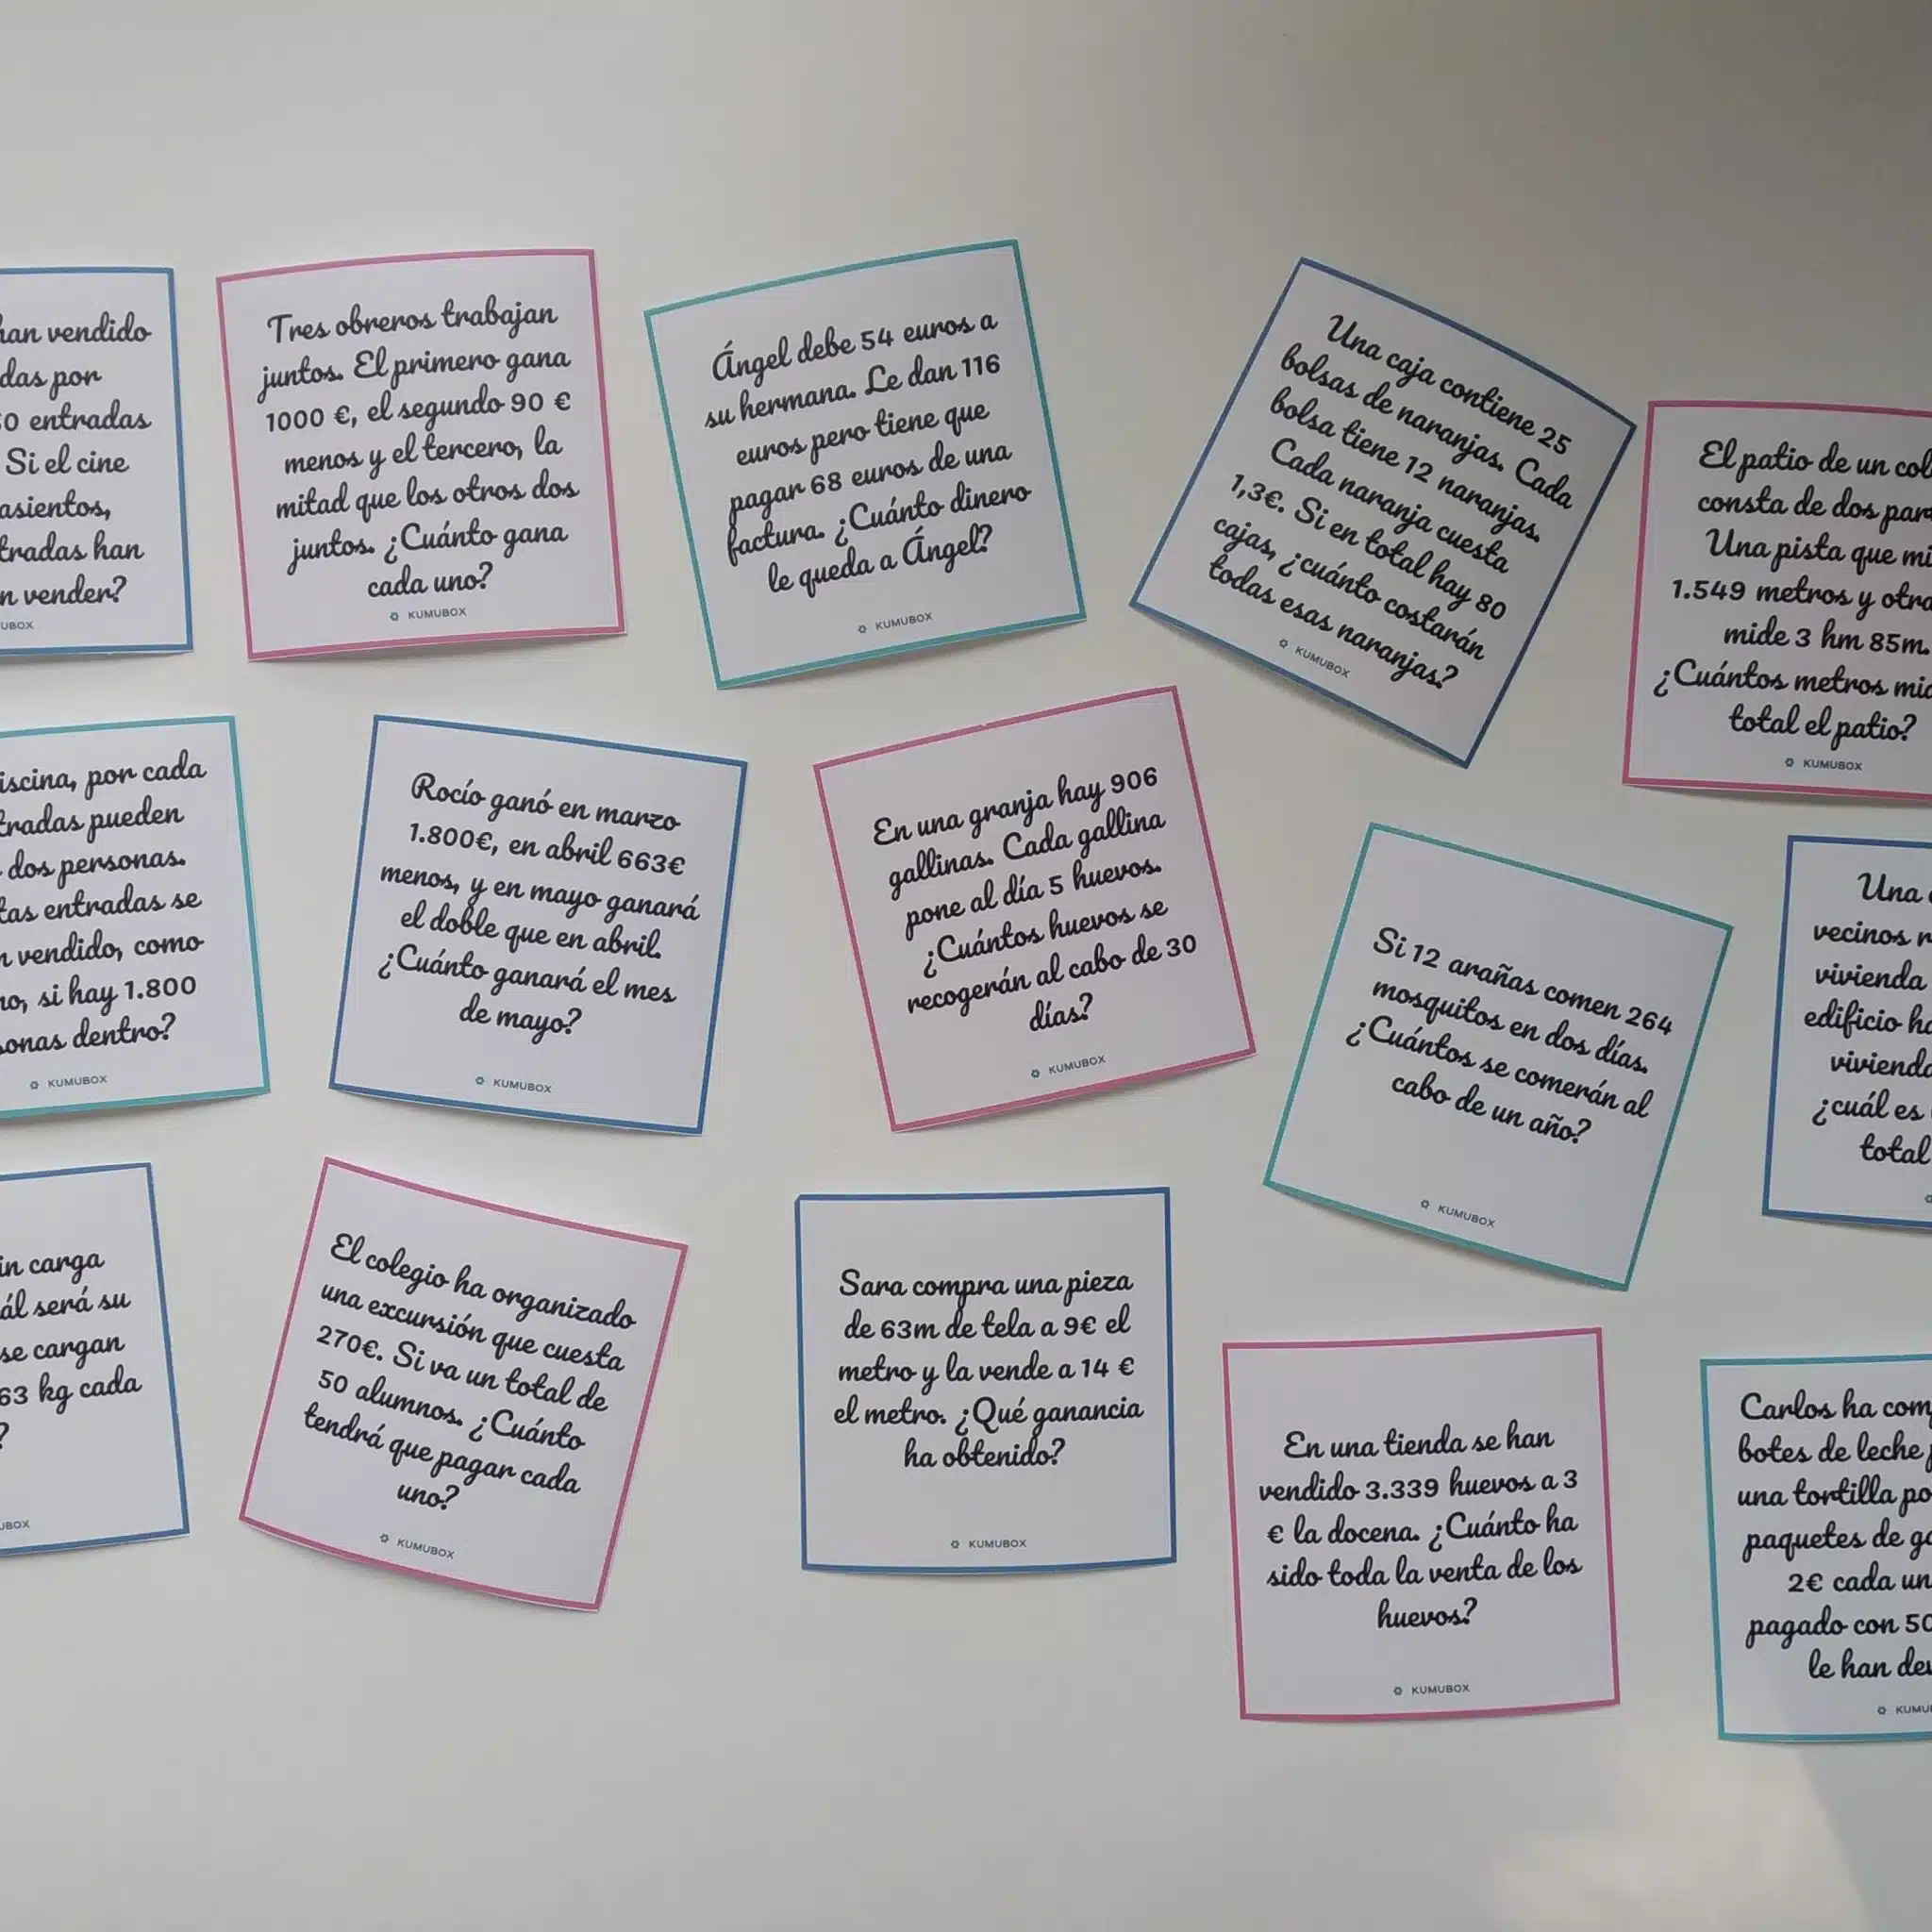 han vendido
das por
50 entradas
Si el cine
asientos,
tradas han
n vender?
UBOX
Tres obreros trabajan
juntos. El primero gana
1000 €, el segundo 90 €
menos y el tercero, la
mitad que los otros dos
juntos. ¿Cuánto gana
cada uno?
KUMUBOX
Ángel debe 54 euros a
su hermana. Le dan 116
euros pero tiene que
pagar 68 euros de una
factura. ¿Cuánto dinero
le queda a Ángel?
KUMUBOX
Una caja contiene 25
bolsas de naranjas. Cada
bolsa tiene 12 naranjas.
Cada naranja cuesta
1,3€. Si en total hay 80
cajas, ¿cuánto costarán
todas esas naranjas?
KUMUBOX
El patio de un col
consta de dos par
Una pista que mi
1.549 metros y otra
mide 3 hm 85m.
¿Cuántos metros mid
total el patio?
KUMUBOX
iscina, por cada
tradas pueden
dos personas.
tas entradas se
n vendido, como
no, si hay 1.800
sonas dentro?
KUMUBOX
Rocío ganó en marzo
1.800€, en abril 663€
menos, y en mayo ganará
el doble que en abril.
¿Cuánto ganará el mes
de mayo?
KUMUBOX
En una granja hay 906
gallinas. Cada gallina
pone al día 5 huevos.
¿Cuántos huevos se
recogerán al cabo de 30
días?
KUMUBOX
Si 12 arañas comen 264
mosquitos en dos días.
¿Cuántos se comerán al
cabo de un año?
KUMUBOX
Una
vecinos
vivienda
edificio ha
vivienda
¿cuál es
total
in carga
ál será su
se cargan
63 kg cada
?
UBOX
El colegio ha organizado
una excursión que cuesta
270€. Si va un total de
50 alumnos. ¿Cuánto
tendrá que pagar cada
uno?
KUMUBOX
Sara compra una pieza
de 63m de tela a 9€ el
metro y la vende a 14 €
el metro. ¿Qué ganancia
ha obtenido?
KUMUBOX
En una tienda se han
vendido 3.339 huevos a 3
€ la docena. ¿Cuánto ha
sido toda la venta de los
huevos?
KUMUBOX
Carlos ha com
botes de leche
una tortilla po
paquetes de ga
2€ cada un
pagado con 50
le han dev
KUMU